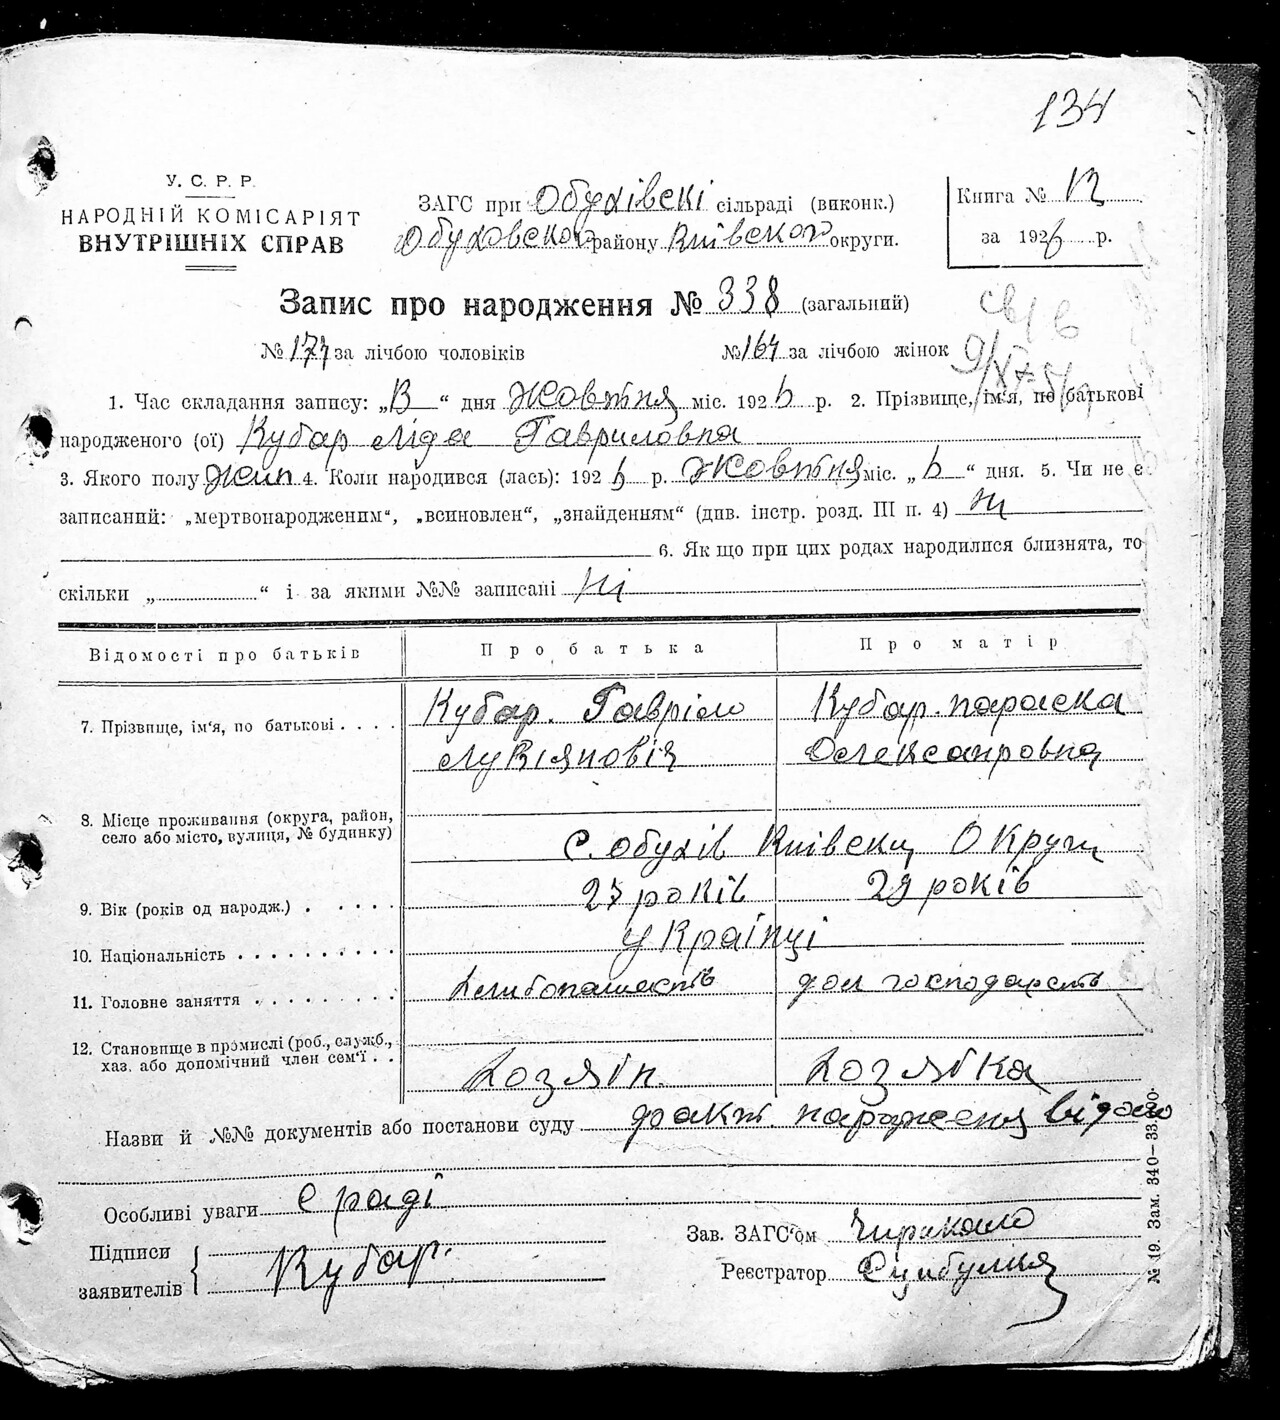 134
У. С. Р. Р.
НАРОДНІЙ КОМІСАРІЯТ
ВНУТРІШНІХ СПРАВ
ЗАГС при Обухівскі сільраді (виконк.)
Обуховского району Київского округи.
Книга №
за 1926 р.
Запис про народження № 338 (загальний)
№ 174 за лічбою чоловіків
№ 164 за лічбою жінок
1. Час складання запису: „ “ дня Жовтня міс. 1926 р. 2. Прізвище, ім'я, по батькові
народженого (ої) Кубар Ліда Гавриловна
3. Якого полу Жин 4. Коли народився (лась): 1926 р. Жовтня міс. „6“ дня. 5. Чи не є
записаний: „мертвонародженим“, „всиновлен“, „знайденням“ (див. інстр. розд. III п. 4) Ні
6. Як що при цих родах народилися близнята, то
скільки „ “ і за якими №№ записані Ні
Відомості про батьків
Про батька
Про матір
7. Прізвище, ім'я, по батькові
Кубар. Гавріло
Лукіяновіч
Кубар. Параска
Олександровна
8. Місце проживання (округа, район,
село або місто, вулиця, № будинку)
С. Обухів Київски Округи
9. Вік (років од народж.)
27 років
29 років
10. Національність
Українці
11. Головне заняття
Хлибопашеств
дом господарств
12. Становище в промислі (роб., служб.,
хаз. або допомічний член сем'ї
Хозяїн.
Хозяйка
Назви й №№ документів або постанови суду факт. народженя відомо
Особливі уваги С раді
Підписи
заявителів
Кубар.
Зав. ЗАГС'ом
Реєстратор
№ 19. Зам. 340—33.000.